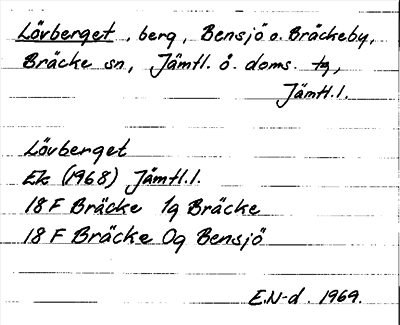 Lövberget, berg, Bensjö o. Bräckeby,
Bräcke sn, Jämtl. ö. doms. tg,
Jämtl. l.
Lövberget
Ek (1968) Jämtl. l.
18 F Bräcke 1g Bräcke
18 F Bräcke 0g Bensjö
E.N-d. 1969.